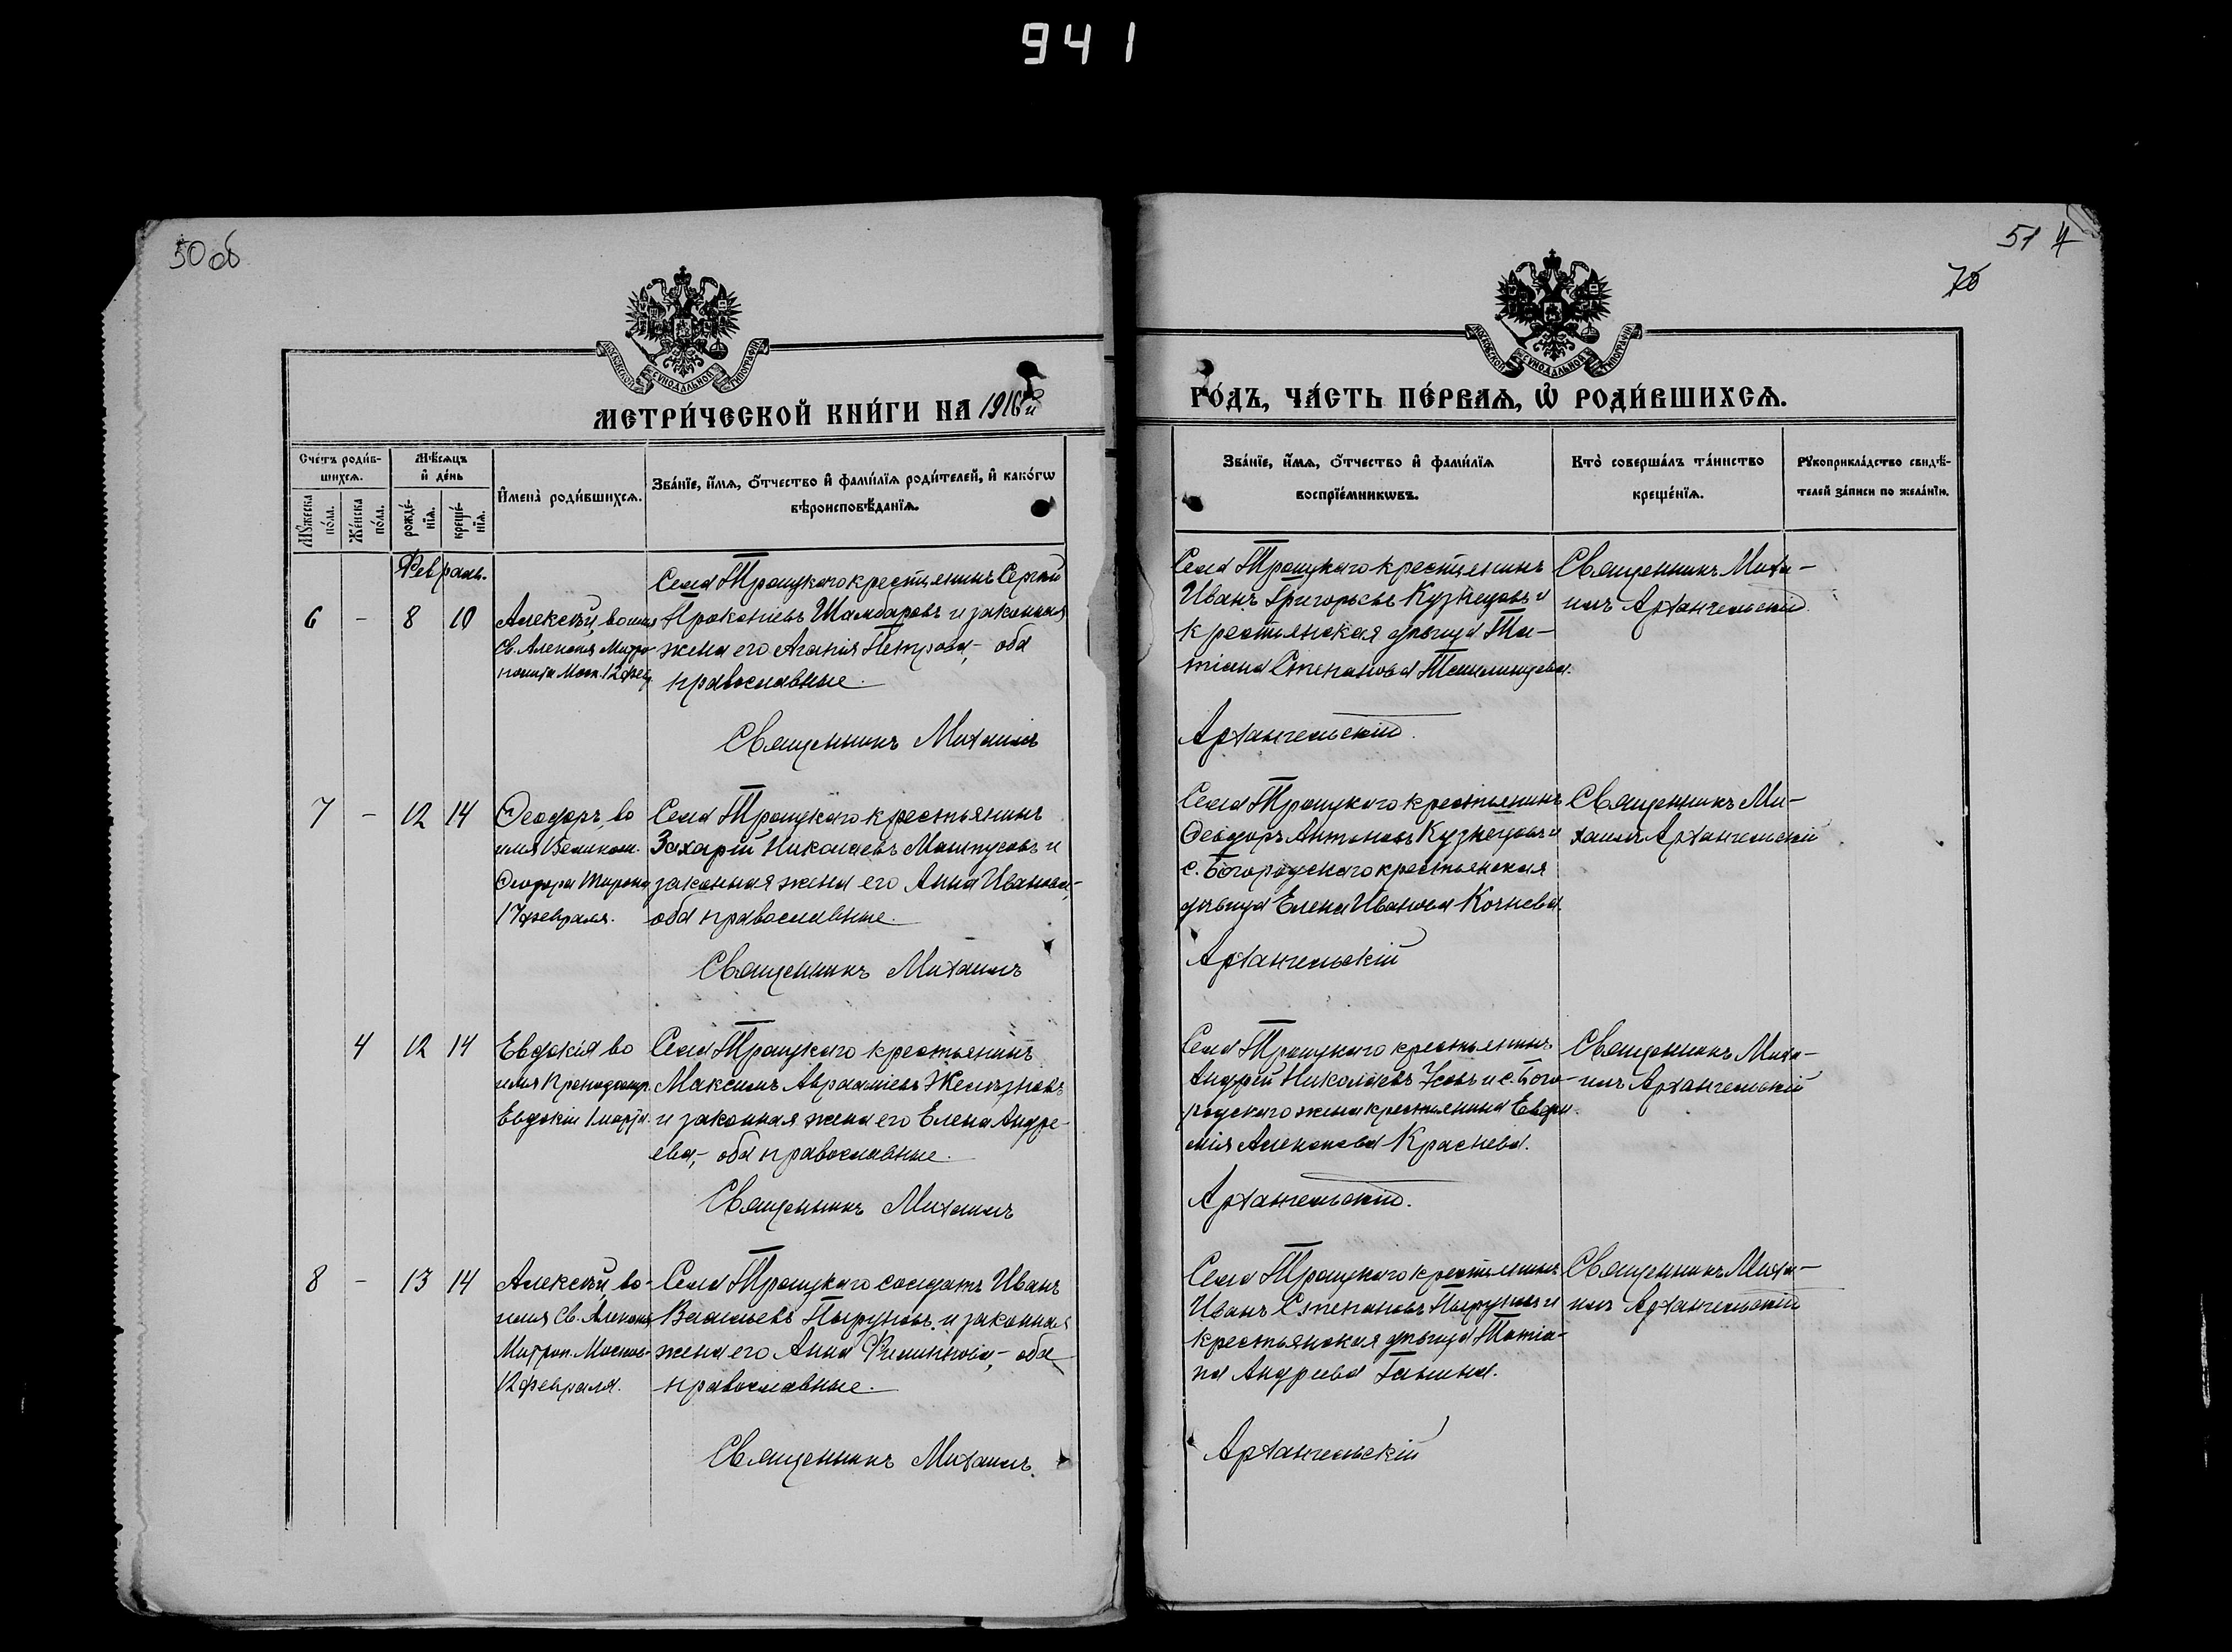 941
50 об
51
МОСКОВСКОЙ СУНОДАЛЬНОЙ ТИПОГРАФІИ
МОСКОВСКОЙ СУНОДАЛЬНОЙ ТИПОГРАФІИ
МЕТРИ́ЧЕСКОЙ КНИ́ГИ НА 1916й
ГО́ДЪ, ЧА́СТЬ ПЕ́РВАѦ, Ѡ҆ РОДИ́ВШИХСѦ.
Сче́тъ роди́в-
шихсѧ.
Мꙋ́жеска
по́ла.
Же́нска
по́ла.
Мѣ́сѧцъ
и҆ де́нь
рожде́-
нїѧ.
креще́-
нїѧ.
И҆мена̀ роди́вшихсѧ.
Зва́нїе, и҆́мѧ, ѻ҆́тчество и҆ фамі́лїѧ роди́телей, и҆ како́гѡ
вѣроисповѣ́данїѧ.
Зва́нїе, и҆́мѧ, ѻ҆́тчество и҆ фами́лїѧ
воспрїе́мникѡвъ.
Кто̀ соверша́лъ та́инство
креще́нїѧ.
Рꙋкоприкла́дство свидѣ́-
телей за́писи по жела́нїю.
Февраль.
6 - 8 10
Алексѣй, во имя
Св. Алексія Митро-
полита Моск. 12 фев.
Села Троицкаго крестьянинъ Сергѣй
Прокопіевъ Шамбаровъ и законная
жена его Агапія Петрова,- оба
православные.
Села Троицкаго крестьянинъ
Иванъ Григорьевъ Кузнецовъ и
крестьянская дѣвица Та-
тіана Степанова
Священникъ Миха-
илъ Архангельскій
Священникъ Михаилъ
Архангельскій.
7 - 12 14
Ѳеодоръ, во
имя Великом.
Ѳеодора Тирона
17 февраля.
Села Троицкаго крестьянинъ
Захарій Николаевъ Мантусовъ и
законная жена его Анна Иванова,-
оба православные.
Села Троицкаго крестьянинъ
Ѳеодоръ Антоновъ Кузнецовъ и
с. Богородскаго крестьянская
дѣвица Елена Иванова Кочнева.
Священникъ Ми-
хаилъ Архангельскій
Священникъ Михаилъ
Архангельскій
4 12 14
Евдокія во
имя Преподомуч.
Евдокіи 1 марта.
Села Троицкаго крестьянинъ
Максимъ Авраамїевъ Желѣзновъ
и законная жена его Елена Андре-
ева,- оба православные.
Села Троицкаго крестьянинъ
Андрей Николаевъ Усовъ и с. Бого-
родскаго жена крестьянина Евфи-
мія Алексѣева Краснева.
Священникъ Миха-
илъ Архангельскій
Священникъ Михаилъ
Архангельскій.
8 - 13 14
Алексѣй, во
имя Св. Алексія
Митроп. Москов-
12 февраля.
Села Троицкаго солдатъ Иванъ
Васильевъ Пыруновъ и законная
жена его Анна Филиппова,- оба
православные.
Села Троицкаго крестьянинъ
Иванъ Степановъ Пырунов и
крестьянская дѣвица Татіа-
на Андреева Ганина.
Священникъ Миха-
илъ Архангельскій
Священникъ Михаилъ.
Архангельскій